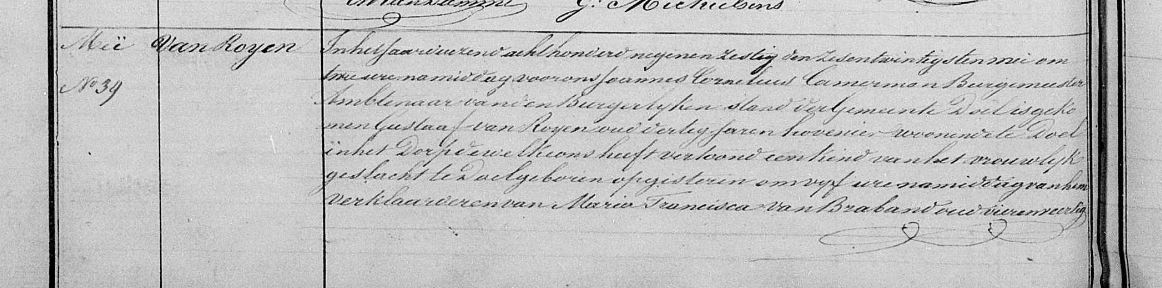 G. Michielsens
Meï Van Royen
N° 39
In het jaar duizend acht honderd negen en zestig den zesentwintigsten meï om
twee ure namiddag voor ons Joannes Cornelius Camerman Burgemeester
Ambtenaar van den Burgerlyken stand der Gemeente Doel is geko
men Gustaaf van Royen oud dertig jaren hovenier woonende te Doel
in het Dorp dewelke ons heeft vertoond een kind van het vrouwlyk
geslacht te Doel geboren op gisteren om vyf ure namiddag van hem
verklaarder en van Maria Francisca van Braband oud vierenveertig